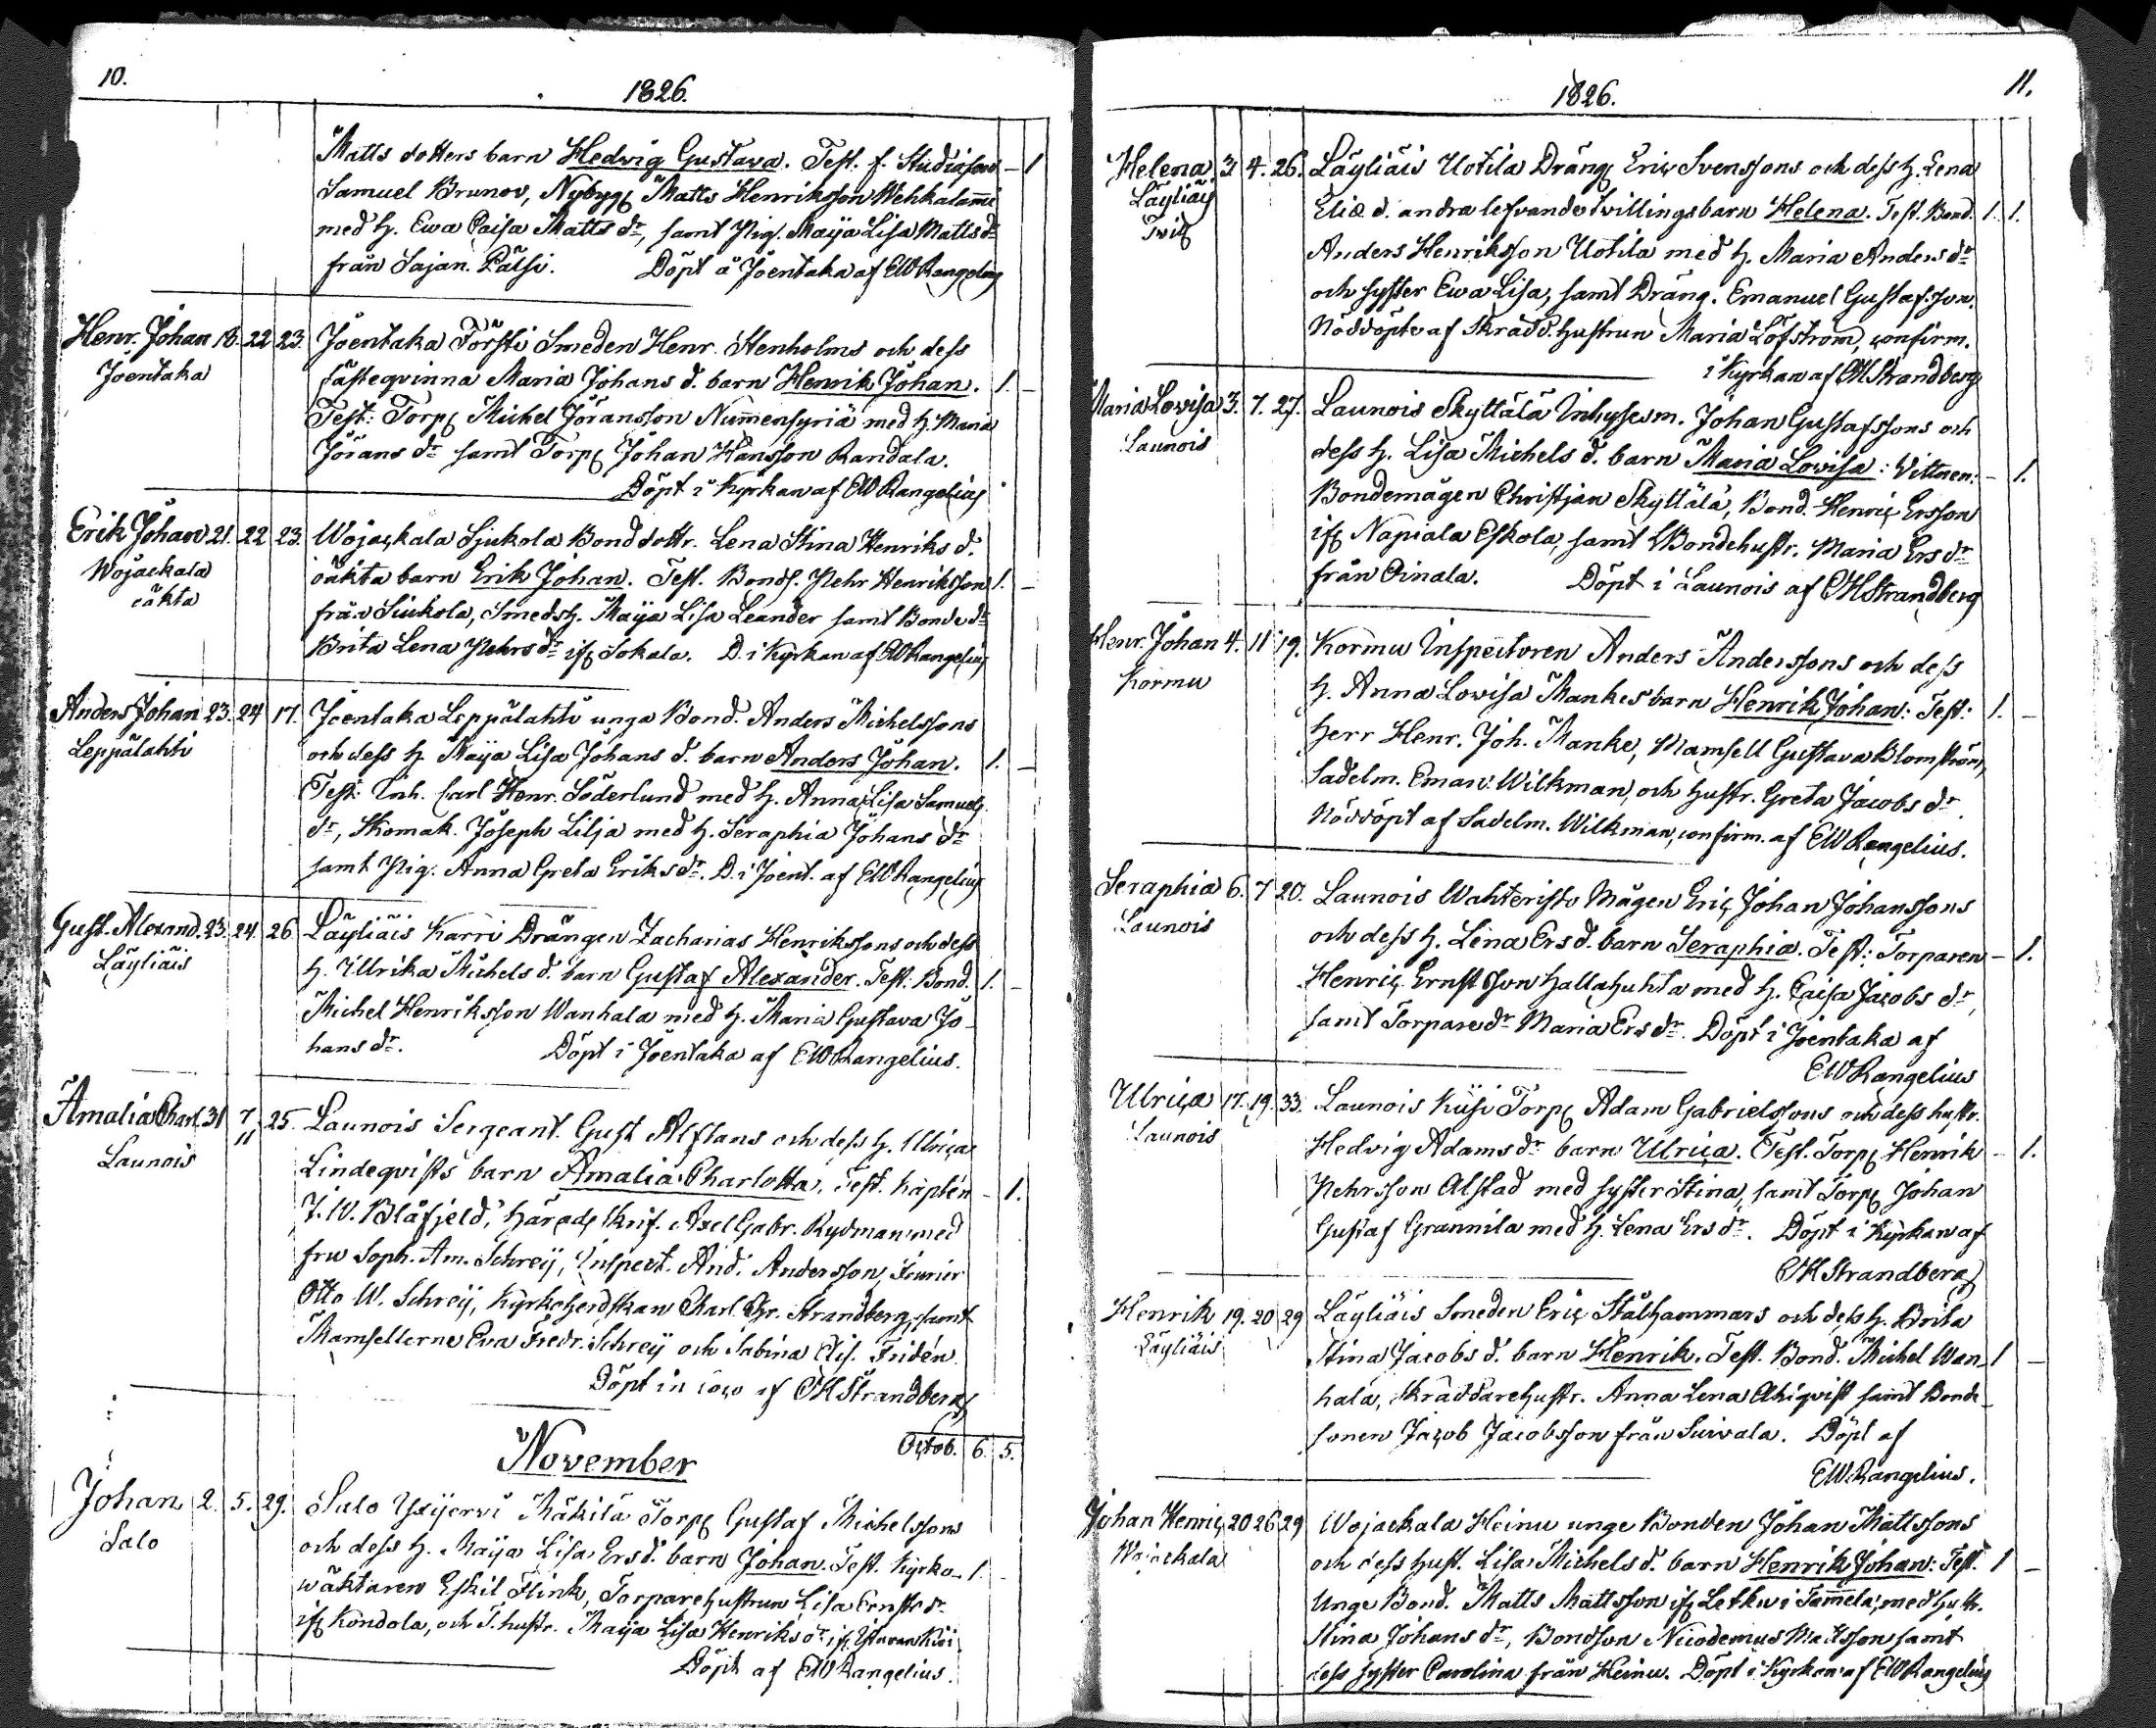 10.
1826.
Matts dotters barn Hedvig Gustava. Test. f. Studiosus — 1
Samuel Brunov, Nybygg. Matts Henriksson Wehkalammi
med h. Ewa Caisa Matts dr, samt Pig. Maija Lisa Matts dr
från Sajan. Pälsi. Döpt i Joentaka af EWRangelius
Henr. Johan 18. 22 23. Joentaka Törsti Smeden Henr. Stenholms och dess
Joentaka fästeqvinna Maria Johans d. barn Henrik Johan. 1. —
Test: Torp. Michel Jöransson Nummensyriä med h. Maria
Jörans dr samt Torp. Johan Hansson Randala.
Döpt i Kyrkan af EWRangelius
Erik Johan 21. 22 23. Wojackala Sjukola Bonddottr. Lena Stina Henriks d.
Wojackala oäkta barn Erik Johan. Test. Bonds. Pehr Henriksson 1. —
oäkta från Siukola, Smedsh. Maija Lisa Leander samt Bonde dr
Brita Lena Pehrs dr ifr. Sokala. D. i Kyrkan af EWRangelius
Anders Johan 23. 24 17. Joentaka Leppälahti unga Bond. Anders Michelssons
Leppälahti och dess h. Maija Lisa Johans d. barn Anders Johan. 1. —
Test: Inh. Carl Henr. Söderlund med h. Anna Lisa Samuels
dr, Skomak. Joseph Lilja med h. Seraphia Johans dr
samt Pig. Anna Greta Eriks dr. D. i Joent. af EWRangelius
Gust. Alexand. 23. 24. 26 Läyliäis Karri Drängen Zacharias Henrikssons och dess
Läyliäis h. Ulrika Michels d. barn Gustaf Alexander. Test. Bond. 1. —
Michel Henriksson Wanhala med h. Maria Gustava Jo-
hans dr. Döpt i Joentaka af EWRangelius.
Amalia Charl. 31 7/11 25. Launois Sergeant. Gust Alftans och dess h. Ulrica
Launois Lindeqvists barn Amalia Charlotta. Test. Kapten — 1.
J. W. Blåfjeld, Häradsskrif. Axel Gabr. Rydman med
fru Soph. Am. Schreij, Inspect. And. Andersson, Fourier
Otto W. Schreij, Kyrkoherdskan Charl. Chr. Strandberg, samt
Mamsellerne Eva Fredr. Schreij och Sabina Elis. Fridén.
Döpt in loco af CHStrandberg
Octob. 6. 5.
November
Johan 2. 5. 29. Salo Yxijervi Mäkilä Torp. Gustaf Michelssons
Salo och dess h. Maija Lisa Ers d. barn Johan. Test. Kyrko- 1.
wäktaren Eskil Flink, Torparehustrun Lisa Ernsts dr
ifr. Kondola, och T. hustr. Maija Lisa Henriks dr ifr.
Döpt af EWRangelius.
1826.
11.
Helena 3 4. 26. Läyliäis Uotila Dräng. Eric Svenssons och dess h. Lena
Läyliäis Eliæ d. andra lefvande twillingsbarn Helena. Test. Bond. 1. 1.
Twill. Anders Henriksson Uotila med h. Maria Anders dr
och syster Ewa Lisa, samt Dräng. Emanuel Gustafsson.
Nöddöpt af Skrädd. hustrun Maria Löfström, confirm.
i Kyrkan af CHStrandberg
Maria Lovisa 3. 7. 27. Launois Skyttälä Inhysesm. Johan Gustafssons och
Launois dess h. Lisa Michels d. barn Maria Lovisa: Vittnen: — 1.
Bondemågen Christian Skyttälä, Bond. Henric Ersson
ifr. Napiala Eskola, samt Bondehustr. Maria Ers dr
från Oinala. Döpt i Launois af CHStrandberg
Henr. Johan 4. 11 19. Kormu Inspectoren Anders Anderssons och dess
Kormu h. Anna Lovisa Mankes barn Henrik Johan: Test: 1. —
Herr Henr. Joh. Manke, Mamsell Gustava Blomström,
Sadelm. Eman. Wilkman, och hustr. Greta Jacobs dr.
Nöddöpt af Sadelm. Wilkman, confirm. af EWRangelius.
Seraphia 6. 7 20. Launois Wahteristo Mågen Eric Johan Johanssons
Launois och dess h. Lena Ers d. barn Seraphia. Test: Torparen — 1.
Henric Ernstsson Hallahuhta med h. Caisa Jacobs dr,
samt Torpare dr Maria Ers dr. Döpt i Joentaka af
EWRangelius
Ulrica 17. 19. 33. Launois Kusi Torp. Adam Gabrielssons och dess hustr.
Launois Hedvig Adams dr barn Ulrica. Test. Torp. Henrik — 1.
Pehrsson Alstad med syster Stina, samt Torp. Johan
Gustaf Grannila med h. Lena Ers dr. Döpt i Kyrkan af
CHStrandberg
Henrik 19. 20 29 Läyliäis Smeden Eric Stålhammars och dess h. Brita
Läyliäis Stina Jacobs d. barn Henrik. Test. Bond. Michel Wan- 1 —
hala, Skräddarehustr. Anna Lena Ahlqvist samt Bonde-
sonen Jacob Jacobsson från Suivala. Döpt af
EWRangelius.
Johan Henric 20 26 29 Wojackala Heinu unge Bonden Johan Mattssons
Wojackala och dess hust. Lisa Michels d. barn Henrik Johan: Test. 1 —
Unge Bond. Matts Mattsson ifr. Letku i Tammela, med hustr.
Stina Johans dr, Bondson Nicodemus Mattsson samt
dess syster Carolina från Heinu. Döpt i Kyrkan af EWRangelius